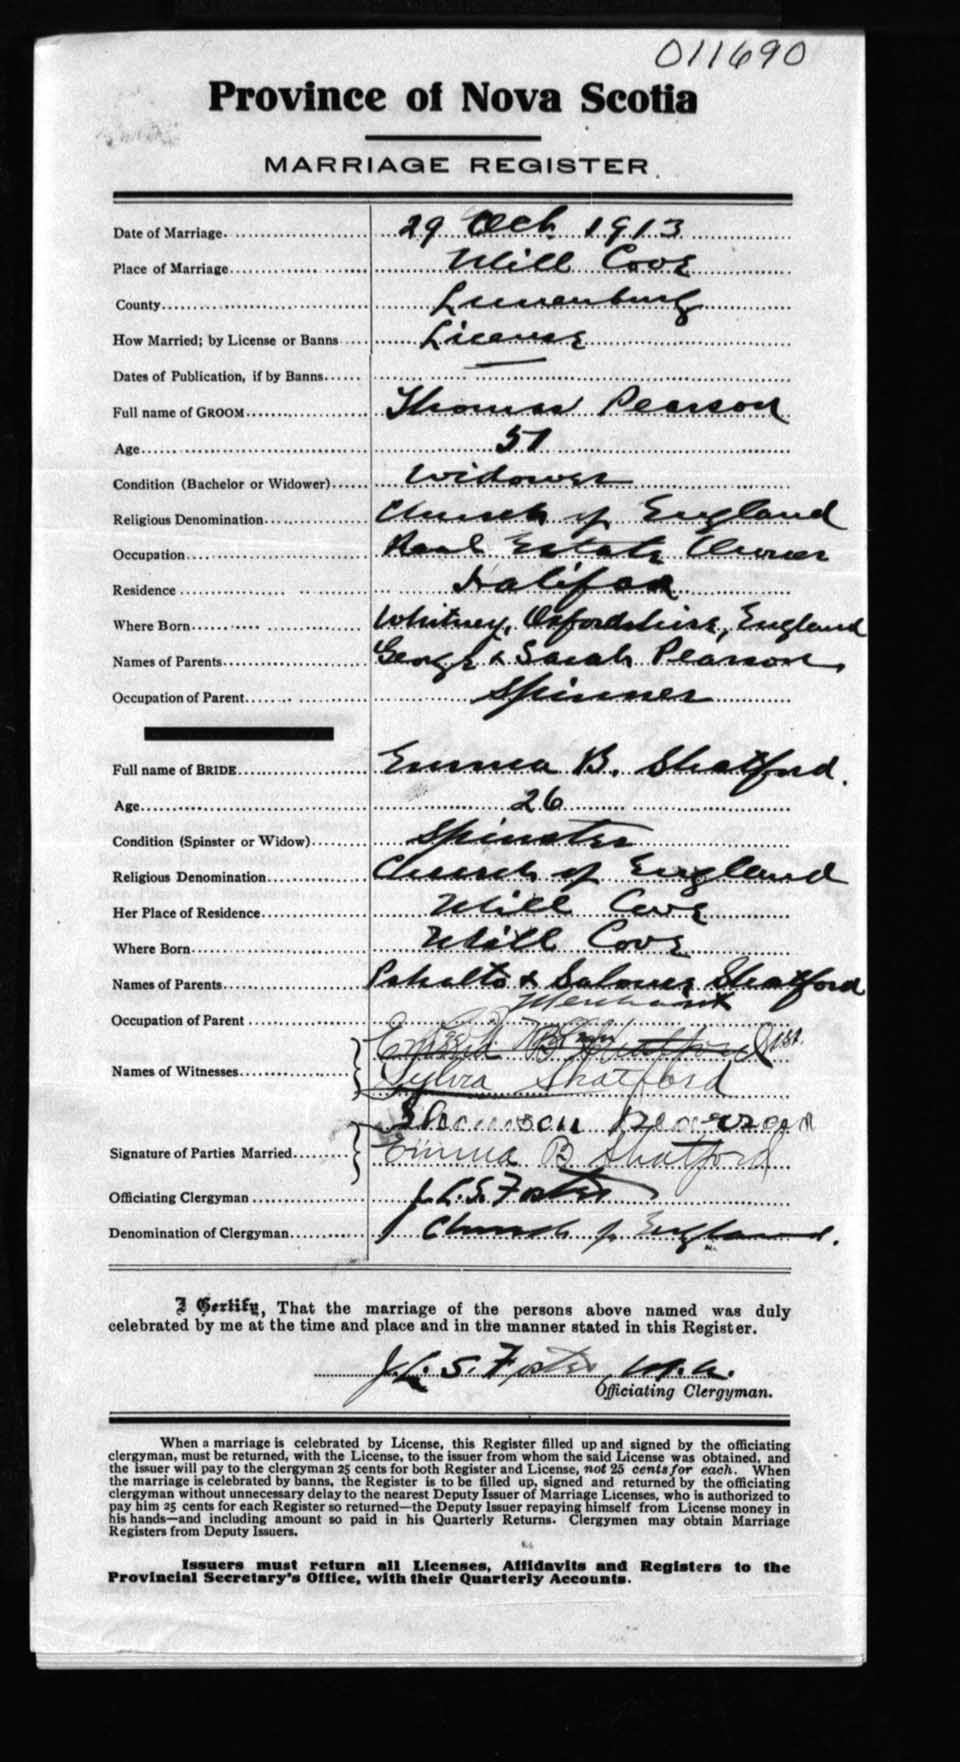 011690
Province of Nova Scotia
MARRIAGE REGISTER.
Date of Marriage 29 Oct. 1913
Place of Marriage Mill Cove
County Lunenburg
How Married; by License or Banns License
Dates of Publication, if by Banns —
Full name of GROOM Thomas Pearson
Age 51
Condition (Bachelor or Widower) Widower
Religious Denomination Church of England
Occupation Real Estate Owner
Residence Halifax
Where Born Whitney, Oxfordshire, England
Names of Parents George & Sarah Pearson,
Occupation of Parent Spinner
Full name of BRIDE Emma B. Shatford.
Age 26
Condition (Spinster or Widow) Spinster
Religious Denomination Church of England
Her Place of Residence Mill Cove
Where Born Mill Cove
Names of Parents & Salome Shatford
Occupation of Parent Merchant
Emma B Shatford
Names of Witnesses Sylvia Shatford
Pearson
Signature of Parties Married Emma B Shatford
Officiating Clergyman J. L. S. Foster
Denomination of Clergyman Church of England.
I Certify, That the marriage of the persons above named was duly
celebrated by me at the time and place and in the manner stated in this Register.
J. L. S. Foster, M.A.
Officiating Clergyman.
When a marriage is celebrated by License, this Register filled up and signed by the officiating
clergyman, must be returned, with the License, to the issuer from whom the said License was obtained, and
the issuer will pay to the clergyman 25 cents for both Register and License, not 25 cents for each. When
the marriage is celebrated by banns, the Register is to be filled up, signed and returned by the officiating
clergyman without unnecessary delay to the nearest Deputy Issuer of Marriage Licenses, who is authorized to
pay him 25 cents for each Register so returned—the Deputy Issuer repaying himself from License money in
his hands—and including amount so paid in his Quarterly Returns. Clergymen may obtain Marriage
Registers from Deputy Issuers.
Issuers must return all Licenses, Affidavits and Registers to the
Provincial Secretary's Office, with their Quarterly Accounts.